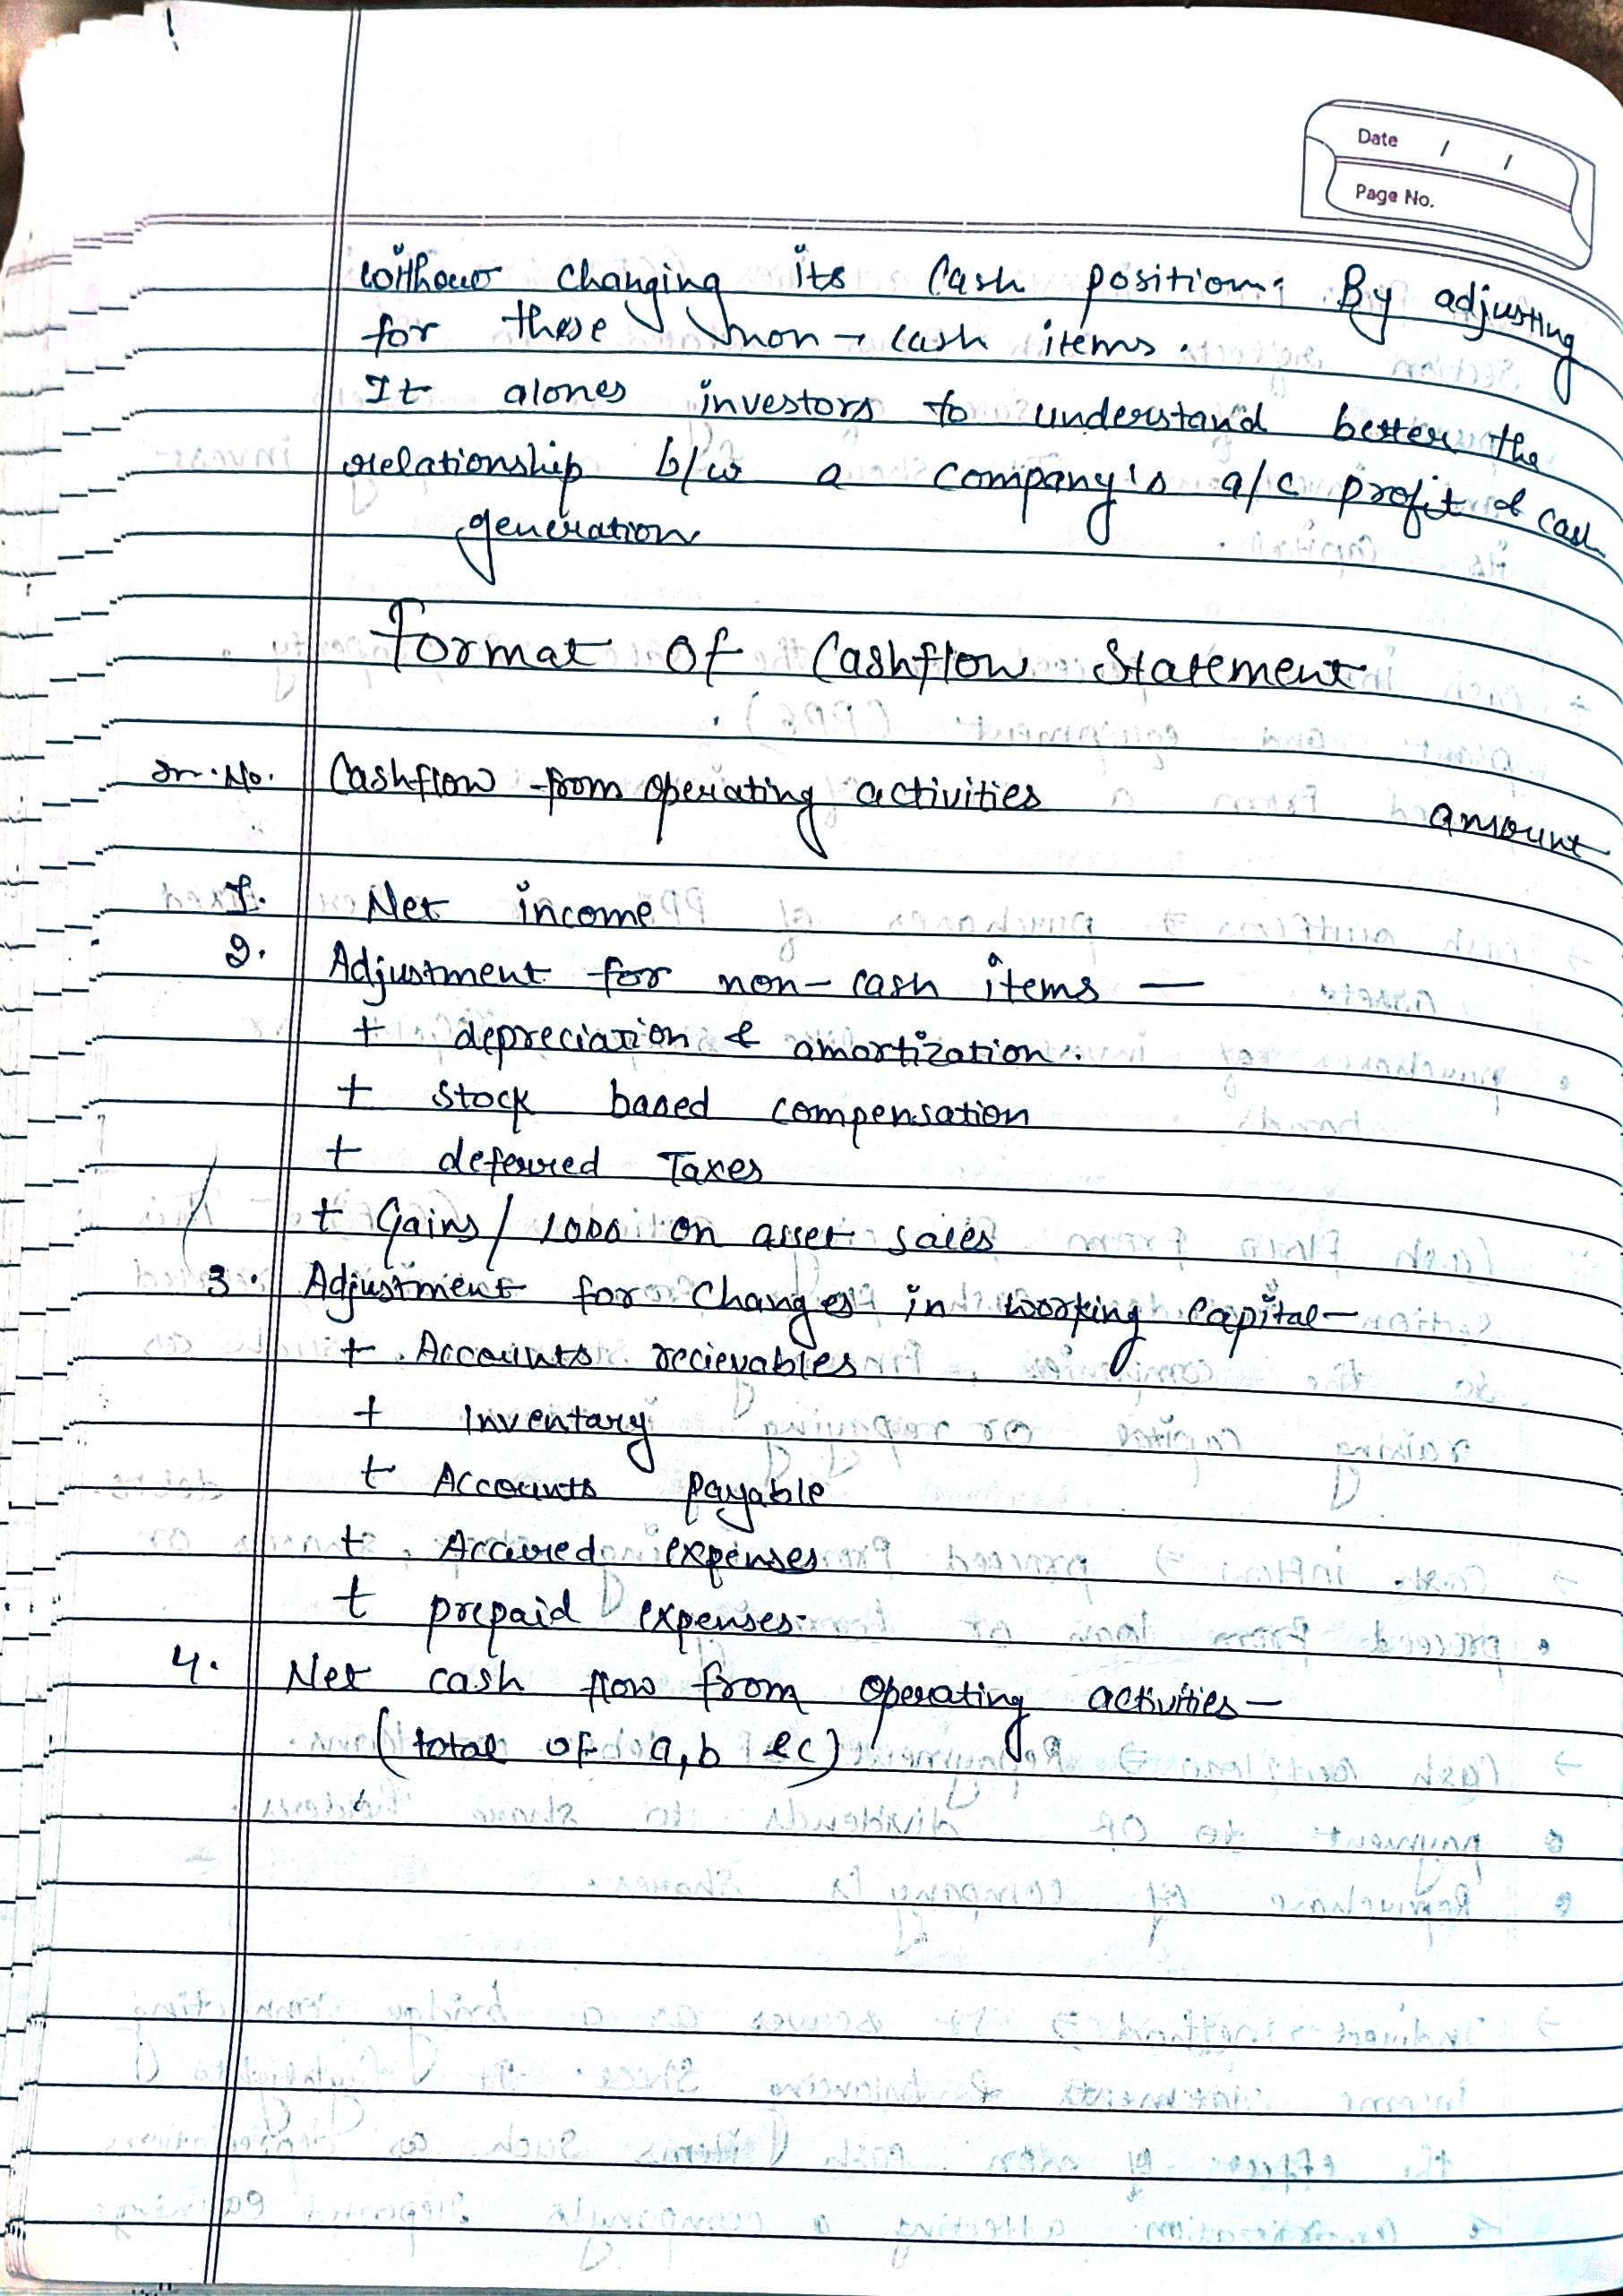 Date / /
Page No.
without changing its Cash position. By adjusting
for these non - cash items.
It alones investors to understand better the
relationship b/w a company's a/c profit & cash
generation
Format Of Cashflow Statement
Sr. No. Cashflow from operating activities amount
1. Net income
2. Adjustment for non- cash items —
+ depreciation & amortization.
+ Stock based compensation
+ deferred Taxes
+ Gains/ loss on asset sales
3. Adjustment for Changes in working capital—
+ Accounts recievables
+ Inventary
+ Accounts payable
+ Accured expenses
+ prepaid expenses
4. Net cash flow from operating activities —
(total of a,b &c)